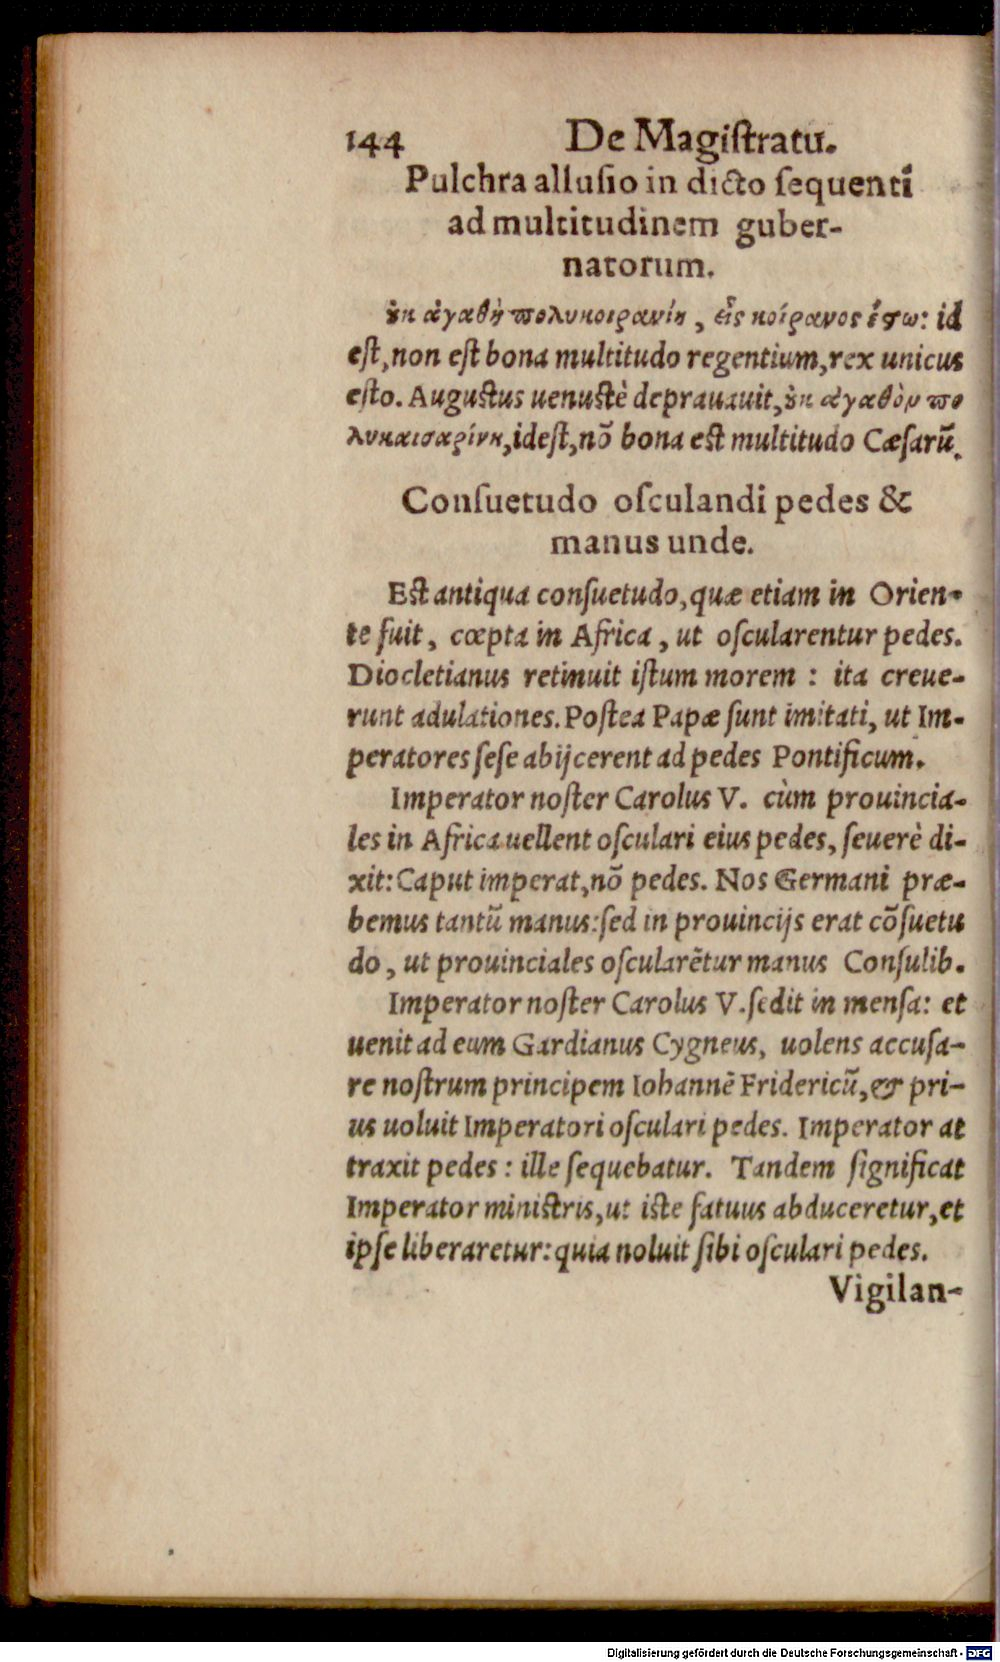 144 De Magiſtratu.
Pulchra alluſio in dicto ſequenti
ad multitudinem guber-
natorum.
ȣκ ἀγαθὴ πολυκοιρανίη, εἷς κοίρανος ἔϛω: id
eſt, non eſt bona multitudo regentium, rex unicus
eſto. Auguſtus uenuſtè deprauauit, ȣκ ἀγαθὸν πο
λυκαισαρίνη, ideſt, nõ bona eſt multitudo Cæſarũ.
Conſuetudo oſculandi pedes &
manus unde.
Eſt antiqua conſuetudo, quæ etiam in Orien-
te fuit, cœpta in Africa, ut oſcularentur pedes.
Diocletianus retinuit iſtum morem: ita creue-
runt adulationes. Poſtea Papæ ſunt imitati, ut Im-
peratores ſeſe abijcerent ad pedes Pontificum.
Imperator noſter Carolus V. cùm prouincia-
les in Africa uellent oſculari eius pedes, ſeuerè di-
xit: Caput imperat, nõ pedes. Nos Germani præ-
bemus tantũ manus: ſed in prouincijs erat cõſuetu
do, ut prouinciales oſcularẽtur manus Conſulib.
Imperator noſter Carolus V. ſedit in menſa: et
uenit ad eum Gardianus Cygneus, uolens accuſa-
re noſtrum principem Iohannẽ Fridericũ, & pri-
us uoluit Imperatori oſculari pedes. Imperator at
traxit pedes: ille ſequebatur. Tandem ſignificat
Imperator miniſtris, ut iſte fatuus abduceretur, et
ipſe liberaretur: quia noluit ſibi oſculari pedes.
Vigilan-
Digitalisierung gefördert durch die Deutsche Forschungsgemeinschaft - DFG